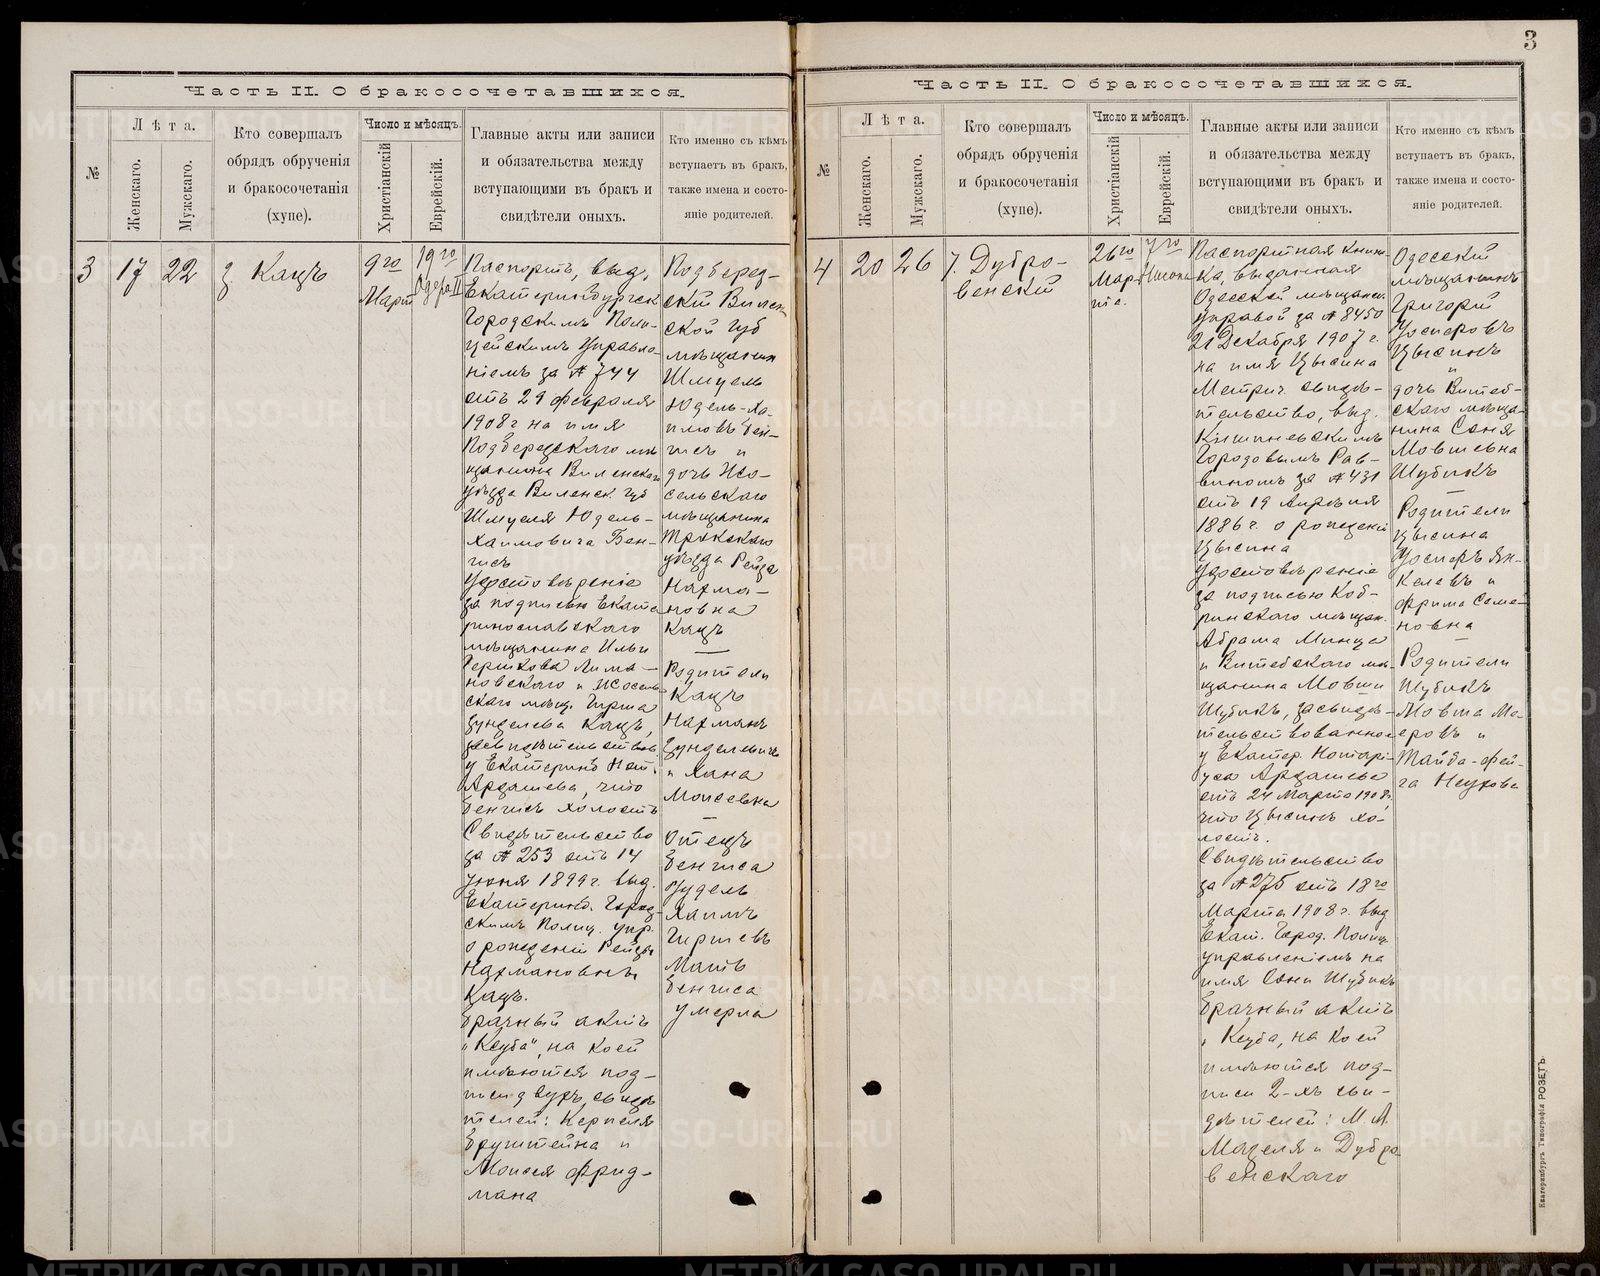 3
Часть II. О бракосочетавшихся.
№
Лѣта.
Женскаго.
Мужскаго.
Кто совершалъ
обрядъ обрученія
и бракосочетанія
(хупе).
Число и мѣсяцъ.
Христіанскій
Еврейскій.
Главные акты или записи
и обязательства между
вступающими въ бракъ и
свидѣтели оныхъ.
Кто именно съ кѣмъ
вступаетъ въ бракъ,
также имена и состо-
яніе родителей.
3
17
22
Кацъ
9го
Март
19го
Адера II
Паспортъ, выд.
Екатеринбургск
Городскимъ Поли-
цейскимъ Управле-
ніемъ за № 744
отъ 29 февраля
1908 г на имя
Подберезскаго мѣ
щанина Виленскаго
уѣзда Виленск. губ
Шмуеля Юдель-
Хаимовича Бен-
гисъ
Удостовѣреніе
за подписью Екате
ринославскаго
мѣщанина Ильи
Гершкова Лима-
новскаго и Жосель
скаго мѣщ. Гирша
Зунделева Кацъ,
засвидѣтельствов
у Екатеринб Нот.
Ардашева, что
Бенгисъ холостъ
Свидѣтельство
за № 253 отъ 14
Іюня 1899 г. выд.
Екатеринб. Город
скимъ Полиц. упр.
о рожденіи Рейзы
Нахмановны
Кацъ.
Брачный актъ
„Ксуба“, на коей
имѣются под-
писи двухъ свидѣ
телей: Кернеля
Бруштейна и
Моисея Фрид-
мана
Подберез-
скій Вилен
ской губ
мѣщанин
Шмуель
Юдель-Ха-
имовъ Бен-
гисъ и
дочь Жо-
сельскаго
мѣщанина
Трокскаго
уѣзда Рейза
Нахма-
новна
Кацъ
Родители
Кацъ
Нахманъ
Зунделевичъ
и Хана
Моисеевна
Отецъ
Бенгиса
Юдель
Хаимъ
Гиршевъ
Мать
Бенгиса
умерла
Часть II. О бракосочетавшихся.
№
Лѣта.
Женскаго.
Мужскаго.
Кто совершалъ
обрядъ обрученія
и бракосочетанія
(хупе).
Число и мѣсяцъ.
Христіанскій
Еврейскій.
Главные акты или записи
и обязательства между
вступающими въ бракъ и
свидѣтели оныхъ.
Кто именно съ кѣмъ
вступаетъ въ бракъ,
также имена и состо-
яніе родителей.
4
20
26
Дубро-
венскій
26го
Мар
та.
7го
Нисона
Паспортная книж
ка, выданная
Одесской мѣщанск.
управой за № 8450
21 Декабря 1907 г.
на имя Цысина
Метрич. свидѣ-
тельство, выд.
Кишиневскимъ
Городовымъ Рав-
виномъ за № 431
отъ 19 Апрѣля
1886 г. о рожденіи
Цысина
Удостовѣреніе
за подписью Коб-
ринскаго мѣщан.
Абрама Минца
и Витебскаго мѣ-
щанина Мовши
Шубикъ, засвидѣ-
тельствованное
у Екатер. Нотарі-
уса Ардашева
отъ 24 Марта 1908 г,
что Цысинъ хо-
лостъ.
Свидѣтельство
за № 275 отъ 18го
Марта 1908 г. выд
Екат. Город. Полиц.
управленіемъ на
имя Сони Шубикъ
Брачный актъ
„Ксуба, на коей
имѣются под-
писи 2-хъ сви-
дѣтелей: М. А.
Мазеля и Дубро
венскаго
Одесскій
мѣщанинъ
Григорій
Іосифовъ
Цысинъ
и
дочь Витеб-
скаго мѣща-
нина Соня
Мовшевна
Шубикъ
Родители
Цысина
Іосифъ Ян-
келевъ и
Фрима Семе-
новна
Родители
Шубикъ
Мовша Ме-
еровъ и
Тайба-Фей-
га Неухова
Екатеринбургъ Типографія РОЗЕТЪ.
METRIKI.GASO-URAL.RU